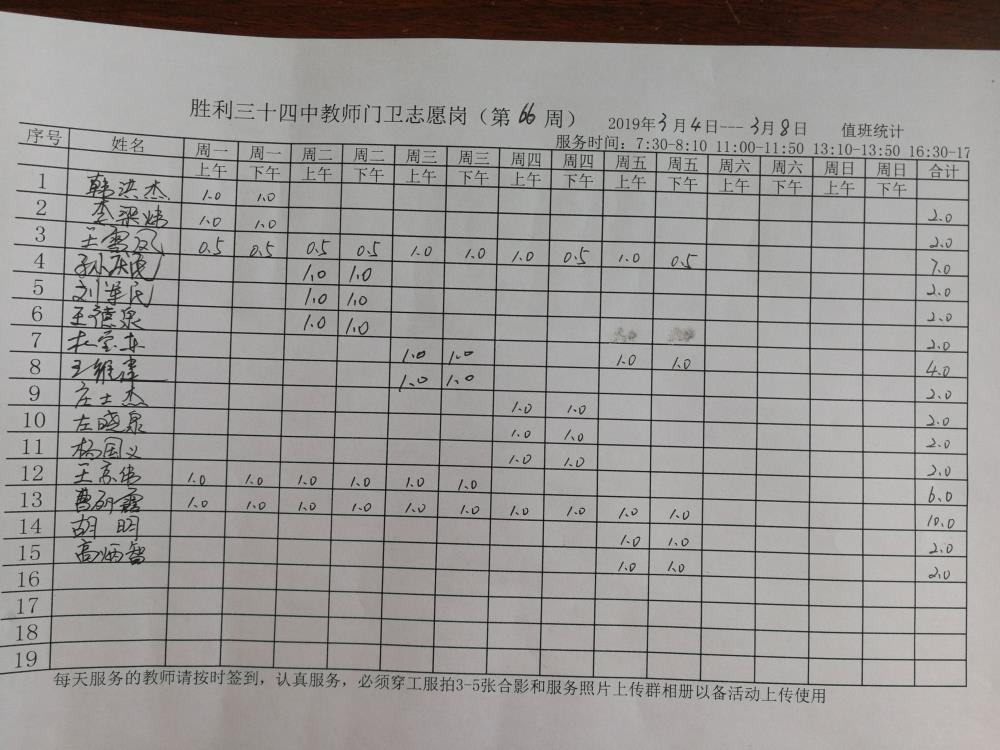 胜利三十四中教师门卫志愿岗（第66周） 2019年3月4日---3月8日 值班统计
服务时间：7:30-8:10 11:00-11:50 13:10-13:50 16:30-17
序号 姓名 周一 周一 周二 周二 周三 周三 周四 周四 周五 周五 周六 周六 周日 周日 合计
上午 下午 上午 下午 上午 下午 上午 下午 上午 下午 上午 下午 上午 下午
1 韩洪杰 1.0 1.0 2.0
2 李梁炜 1.0 1.0 2.0
3 王雪凤 0.5 0.5 0.5 0.5 1.0 1.0 1.0 0.5 1.0 0.5 7.0
4 孙庆民 1.0 1.0 2.0
5 刘军民 1.0 1.0 2.0
6 王德泉 1.0 1.0 2.0
7 杜宝东 1.0 1.0 1.0 1.0 4.0
8 王维建 1.0 1.0 2.0
9 庄士杰 1.0 1.0 2.0
10 左晓泉 1.0 1.0 2.0
11 杨国义 1.0 1.0 2.0
12 王高伟 1.0 1.0 1.0 1.0 1.0 1.0 6.0
13 曹砚露 1.0 1.0 1.0 1.0 1.0 1.0 1.0 1.0 1.0 1.0 10.0
14 胡明 1.0 1.0 2.0
15 高炳智 1.0 1.0 2.0
16
17
18
19
每天服务的教师请按时签到，认真服务，必须穿工服拍3-5张合影和服务照片上传群相册以备活动上传使用